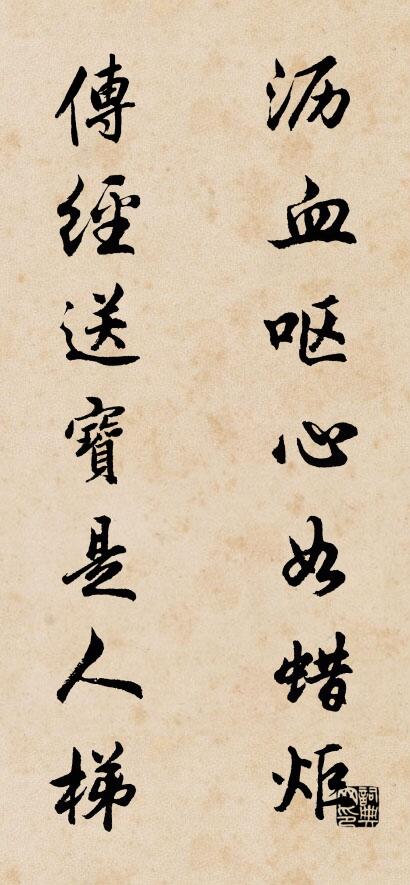 沥血呕心如蜡炬
傳經送寶是人梯